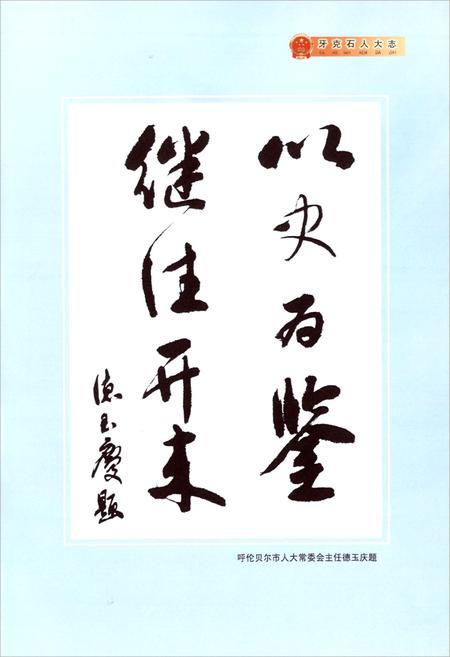 牙克石人大志
以史为鉴
继往开来
德玉庆题
呼伦贝尔市人大常委会主任德玉庆题